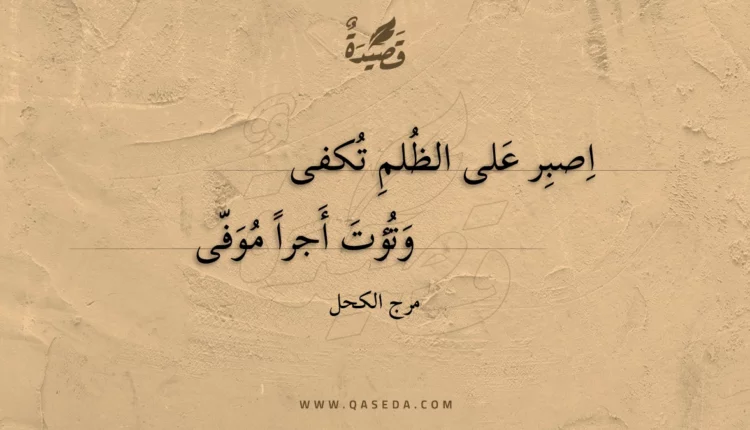 قَصِيدَةٌ
اِصبِر عَلى الظُلمِ تُكفى
وَتُؤتَ أَجراً مُوَفّى
مرج الكحل
WWW.QASEDA.COM